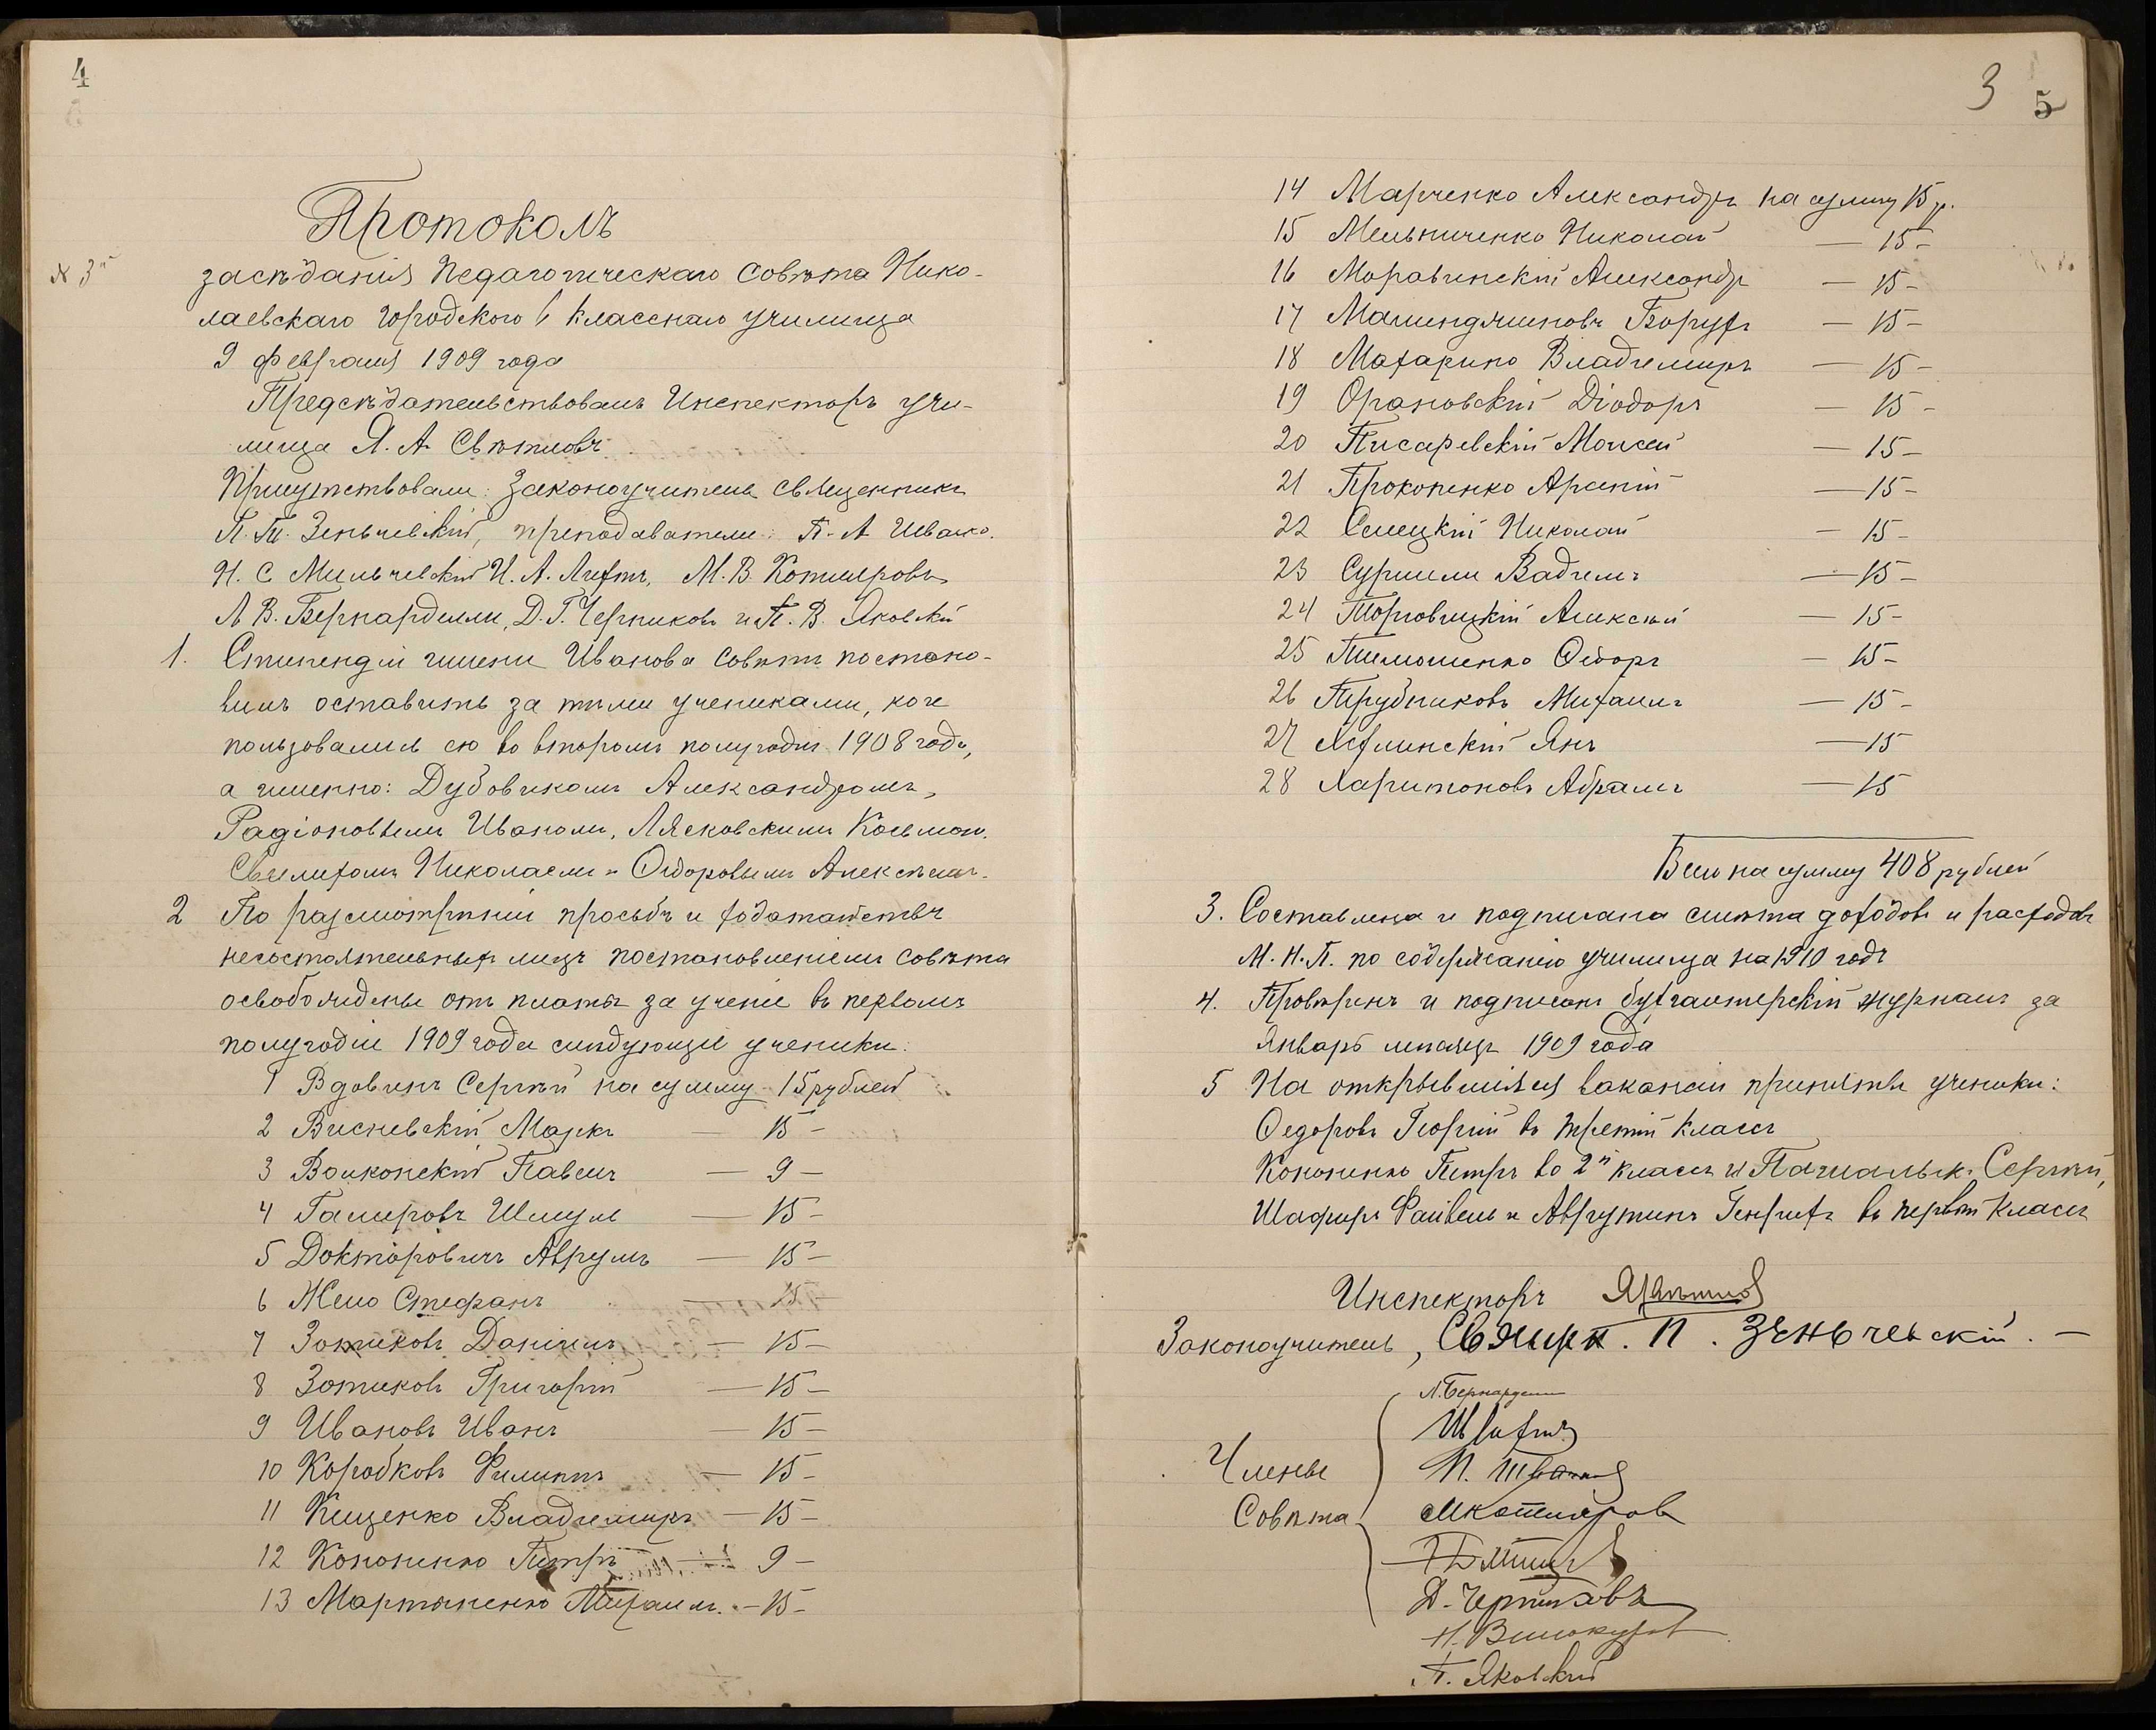 4
Протоколъ
№ 3й
засѣданія Педагогическаго Совѣта Нико-
лаевскаго городского 6 класснаго училища
9 февраля 1909 года
Предсѣдательствовалъ Инспекторъ учи-
лища Я. А. Свѣтловъ.
Присутствовали: Законоучитель священникъ
П. Зеньчевскій, преподаватели: П. А. Ивашко.
Н. С. Мильчевскій И. А. Лифтъ, М. В. Котляровъ
Л. В. Бернарделли, Д. Г. Черниковъ и П. В. Яковскій
1. Стипендіи имени Иванова Совѣтъ постано-
вилъ оставить за тѣми учениками, кои
пользовались ею во второмъ полугодіи 1908 года,
а именно: Дубовикомъ Александромъ,
Радіоновымъ Иваномъ, Лясковскимъ Косьмою.
Николаемъ и Ѳедоровымъ Алексѣемъ.
2 По разсмотрѣніи просьбъ и ходатайствъ
несостоятельныхъ лицъ постановленіемъ Совѣта
освобождены отъ платы за ученіе въ первомъ
полугодіи 1909 года слѣдующіе ученики:
1 Вдовинъ Сергѣй на сумму 15 рублей
2 Висневскій Маркъ — 15 —
3 Волконскій Павелъ — 9 —
4 Гамеровъ Шмуль — 15 —
5 Доктаровичъ Аврумъ — 15 —
6 Жело Стефанъ — 15 —
7 Зотиковъ Даніилъ — 15 —
8 Зотиковъ Григорій — 15 —
9 Ивановъ Иванъ — 15 —
10 Коробковъ Филиппъ — 15 —
11 Кищенко Владимиръ — 15 —
12 Кононенко Петръ — 9 —
13 Мартыненко Михаилъ. — 15 —
3 5
14 Марченко Александръ на сумму 15 р.
15 Мельниченко Николай — 15 —
16 Моравинскій Александръ — 15 —
17 Борухъ — 15 —
18 Матарино Владимиръ — 15 —
19 Орановскій Діодоръ — 15 —
20 Писаревскій Моисей — 15 —
21 Прокопенко Арсеній — 15 —
22 Селецкій Николай — 15 —
23 Сурмели Вадимъ — 15 —
24 Торговицкій Алексѣй — 15 —
25 Тимошенко Ѳедоръ — 15 —
26 Трубниковъ Михаилъ — 15 —
27 Янъ — 15
28 Харитоновъ Абрамъ — 15
Всего на сумму 408 рублей
3. Составлена и подписана смѣта доходовъ и расходовъ
М. Н. П. по содержанію училища на 1910 годъ
4. Провѣренъ и подписанъ бухгалтерскій журналъ за
Январь мѣсяцъ 1909 года
5 На открывшіяся вакансіи приняты ученики:
Ѳедоровъ Георгій въ третій классъ
Кононенко Петръ во 2й классъ и Сергѣй,
Шафиръ Файвель и Аврутинъ Генрихъ въ первый классъ
Инспекторъ ЯСвѣтловъ
Законоучитель, Священ. П. Зеньчевскій. —
Члены
Совѣта
Л. Бернарделли
И Лифтъ
П. Ивашко
МКотляровъ
Д. Черниковъ
Н. Винокуровъ
П. Яковскій